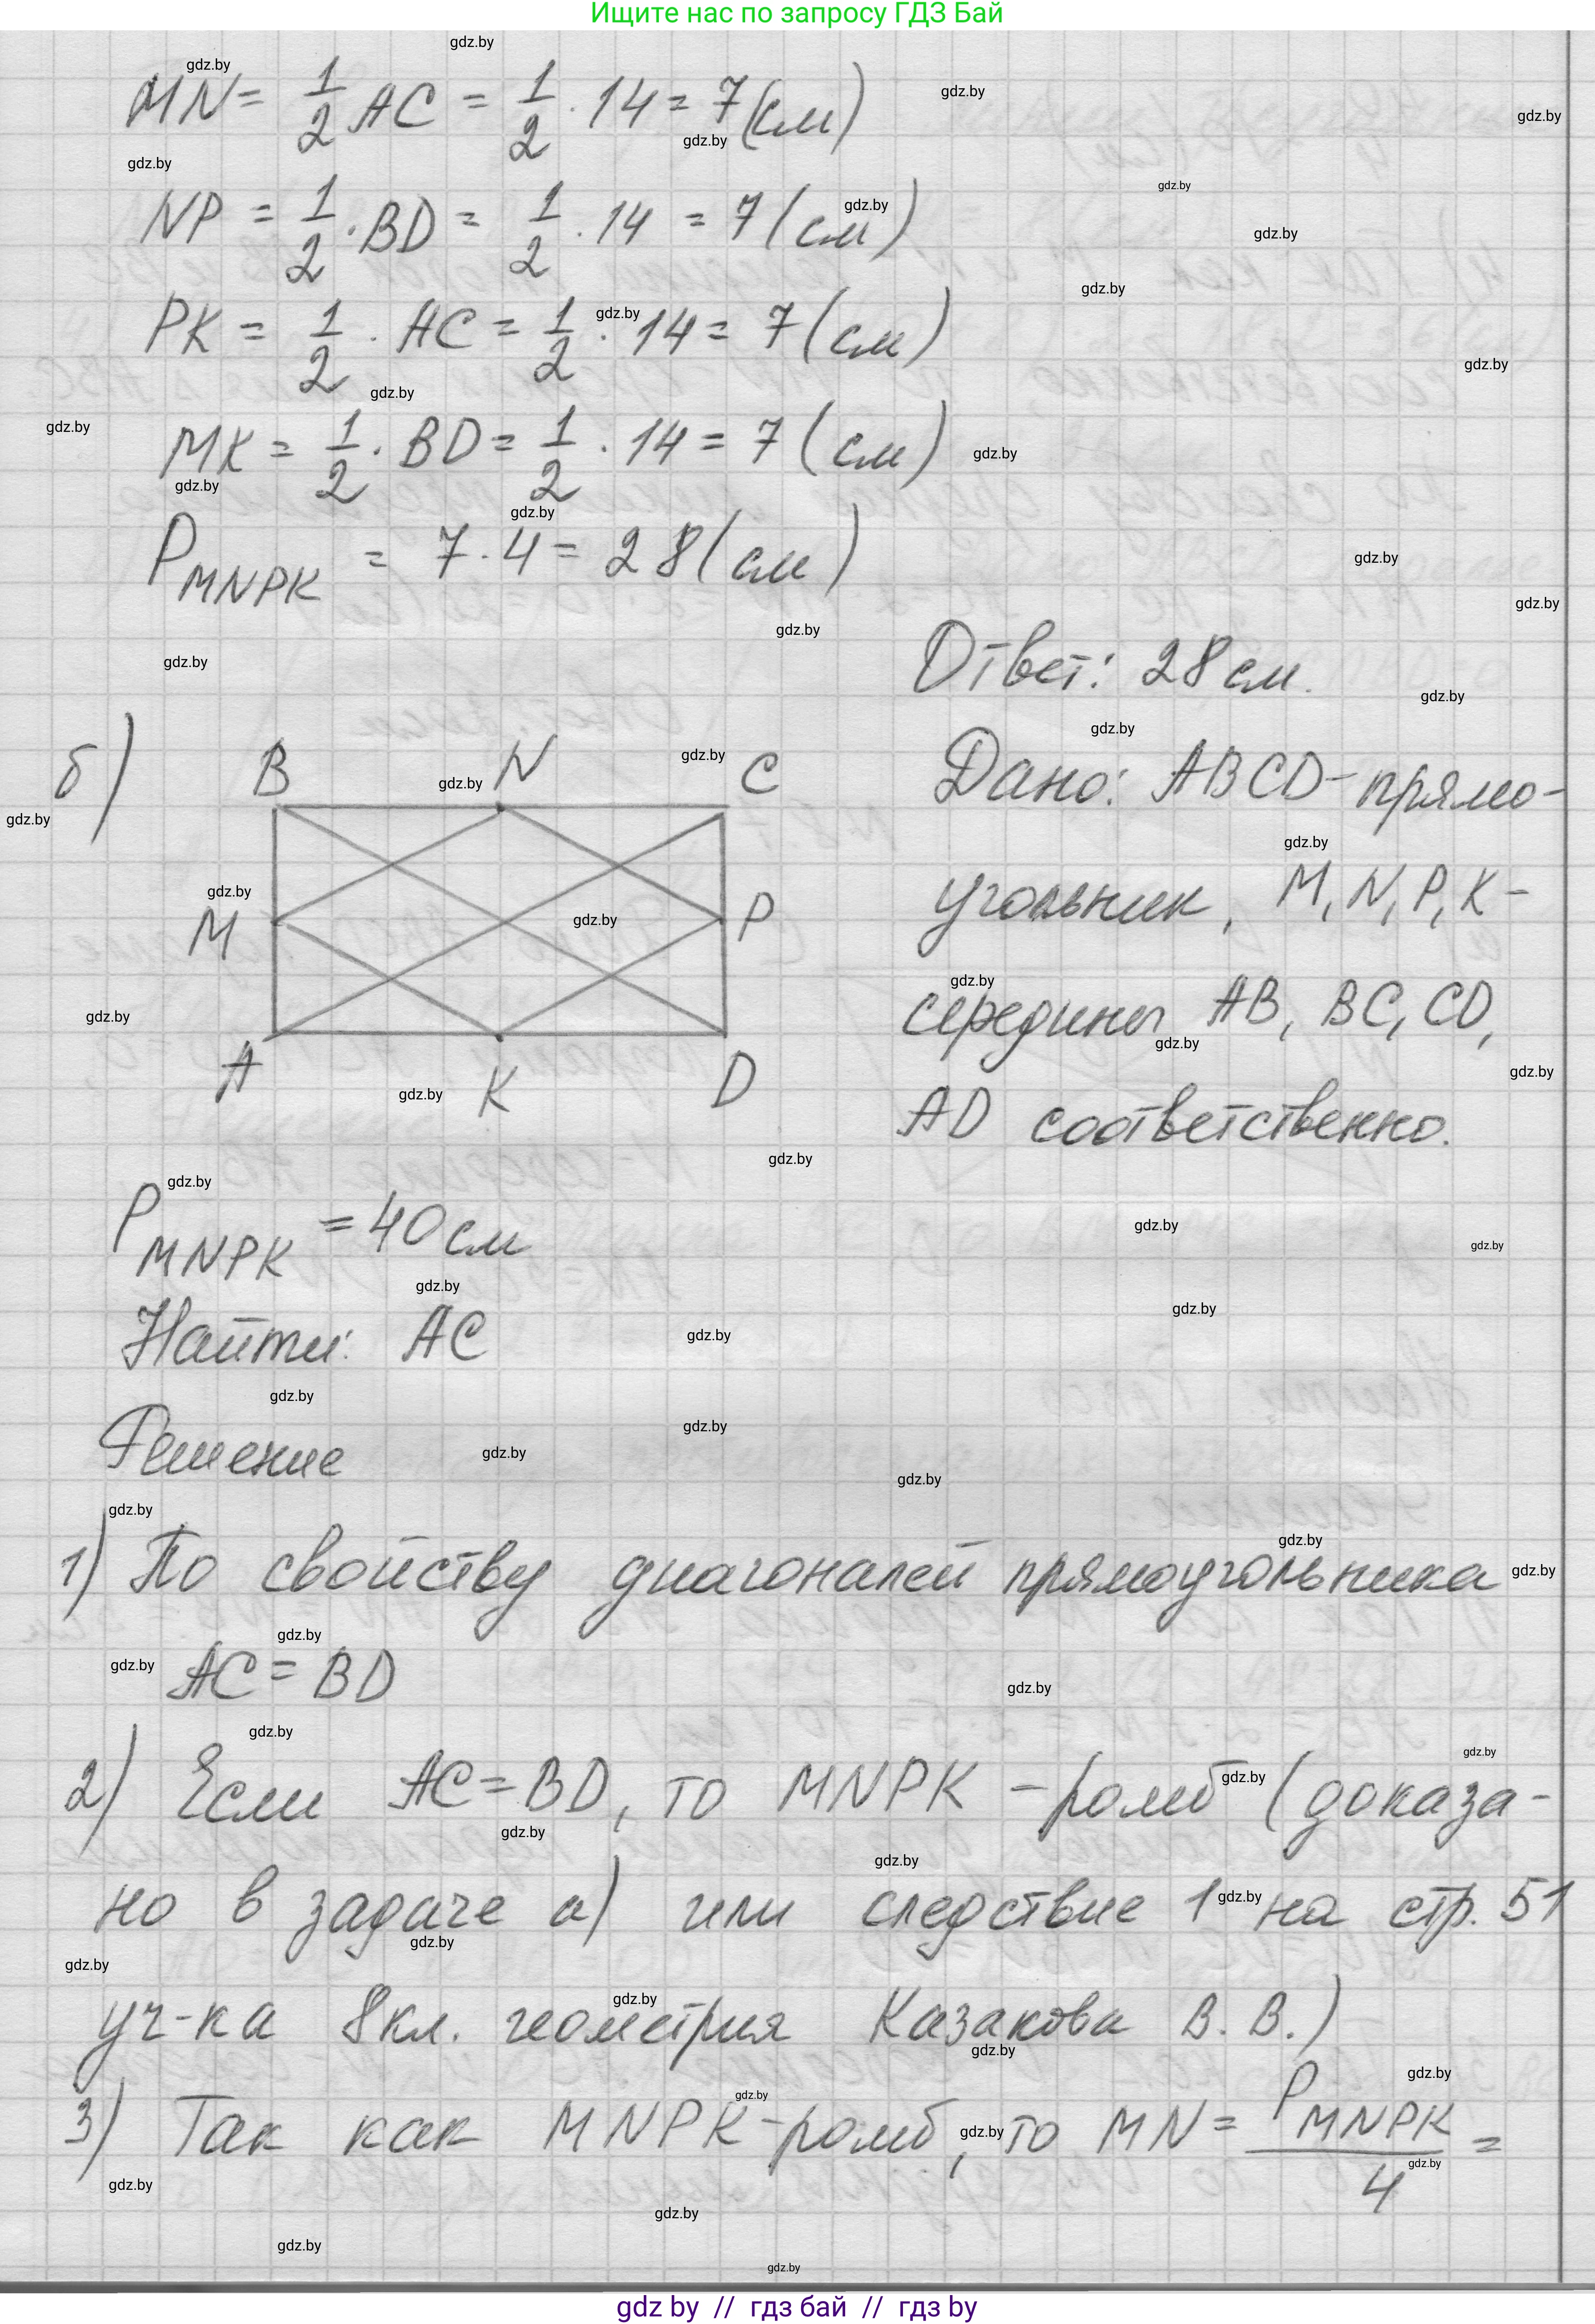 Ищите нас по запросу ГДЗ Бай
MN = 1/2 AC = 1/2 · 14 = 7 (см)
NP = 1/2 · BD = 1/2 · 14 = 7 (см)
PK = 1/2 · AC = 1/2 · 14 = 7 (см)
MK = 1/2 · BD = 1/2 · 14 = 7 (см)
P MNPK = 7 · 4 = 28 (см)
Ответ: 28 см.
б)
B N C
M P
A K D
Дано: ABCD – прямо-
угольник, M, N, P, K –
середины AB, BC, CD,
AD соответственно.
P MNPK = 40 см
Найти: AC
Решение
1) По свойству диагоналей прямоугольника
AC = BD
2) Если AC = BD, то MNPK – ромб (доказа-
но в задаче а) или следствие 1 на стр. 51
уч-ка 8 кл. геометрия Казакова В. В.)
3) Так как MNPK – ромб, то MN = P MNPK / 4 =
gdz.by
gdz by // гдз бай // гдз by